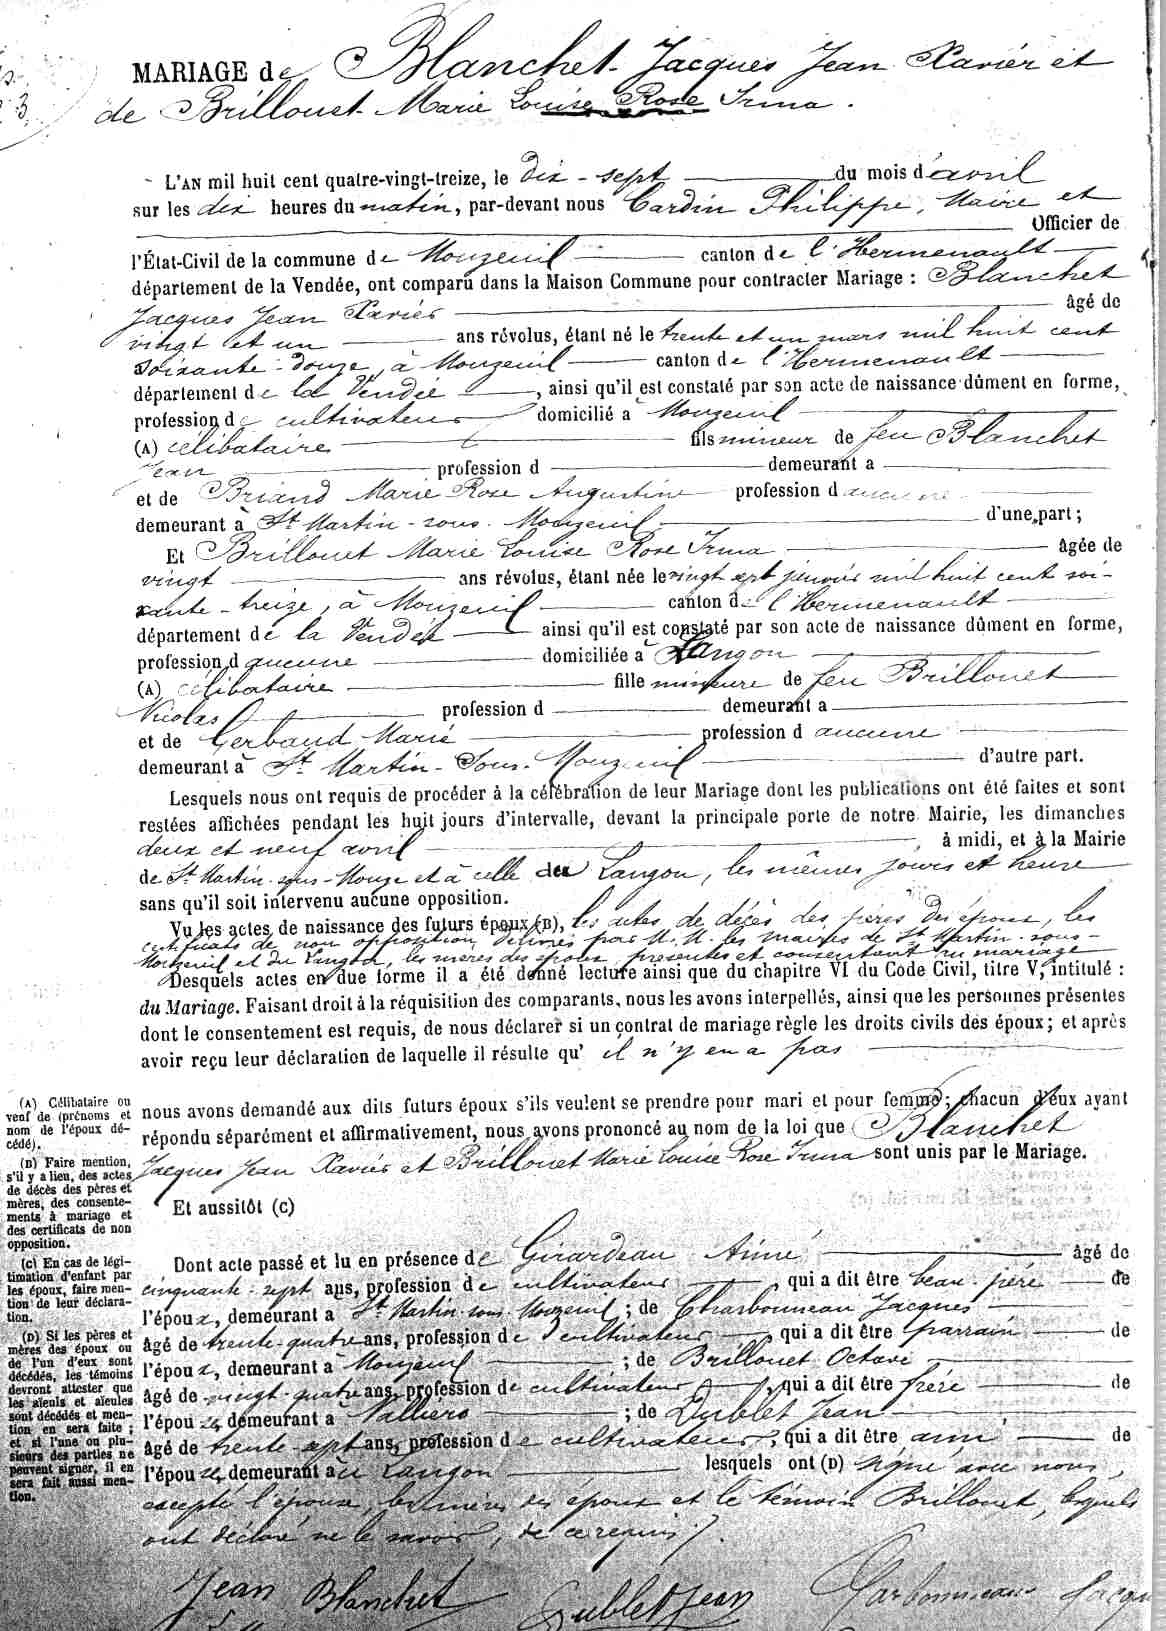 MARIAGE de Blanchet Jacques Jean Xavier et
de Brillouet Marie Louise Rose Irma.
L'AN mil huit cent quatre-vingt-treize, le dix-sept du mois d'avril
sur les dix heures du matin, par-devant nous Cardin Philippe, Maire et
Officier de
l'État-Civil de la commune de Mouzeuil canton de l'Hermenault
département de la Vendée, ont comparu dans la Maison Commune pour contracter Mariage : Blanchet
Jacques Jean Xavier âgé de
vingt et un ans révolus, étant né le trente et un mars mil huit cent
soixante-douze, à Mouzeuil canton de l'Hermenault
département de la Vendée, ainsi qu'il est constaté par son acte de naissance dûment en forme,
profession de cultivateur domicilié à Mouzeuil
(A) célibataire fils mineur de feu Blanchet
Jean profession d demeurant a
et de Briand Marie Rose Augustine profession d aucune
demeurant à St Martin-sous-Mouzeuil d'une part ;
Et Brillouet Marie Louise Rose Irma âgée de
vingt ans révolus, étant née le vingt sept janvier mil huit cent soi-
xante-treize, à Mouzeuil canton de l'Hermenault
département de la Vendée ainsi qu'il est constaté par son acte de naissance dûment en forme,
profession d aucune domiciliée à Langon
(A) célibataire fille mineure de feu Brillouet
Nicolas profession d demeurant a
et de Gerbaud Marie profession d aucune
demeurant à St Martin-Sous-Mouzeuil d'autre part.
Lesquels nous ont requis de procéder à la célébration de leur Mariage dont les publications ont été faites et sont
restées affichées pendant les huit jours d'intervalle, devant la principale porte de notre Mairie, les dimanches
deux et neuf avril à midi, et à la Mairie
de St Martin-sous-Mouze et à celle du Langon, les mêmes jours et heure
sans qu'il soit intervenu aucune opposition.
Vu les actes de naissance des futurs époux (B), les actes de décès des pères des époux, les
certificats de non opposition délivrés par M.M. les maires de St Martin-sous-
Mouzeuil et du Langon, les mères des époux présentes et consentant au mariage
Desquels actes en due forme il a été donné lecture ainsi que du chapitre VI du Code Civil, titre V, intitulé :
du Mariage. Faisant droit à la réquisition des comparants, nous les avons interpellés, ainsi que les personnes présentes
dont le consentement est requis, de nous déclarer si un contrat de mariage règle les droits civils des époux ; et après
avoir reçu leur déclaration de laquelle il résulte qu' il n'y en a pas
nous avons demandé aux dits futurs époux s'ils veulent se prendre pour mari et pour femme ; chacun d'eux ayant
répondu séparément et affirmativement, nous avons prononcé au nom de la loi que Blanchet
Jacques Jean Xavier et Brillouet Marie Louise Rose Irma sont unis par le Mariage.
Et aussitôt (C)
Dont acte passé et lu en présence de Girardeau Aimé âgé de
cinquante-sept ans, profession de cultivateur, qui a dit être beau-père de
l'époux, demeurant à St Martin-sous-Mouzeuil ; de Charbonneau Jacques
âgé de trente-quatre ans, profession de cultivateur, qui a dit être parrain de
l'époux, demeurant à Mouzeuil ; de Brillouet Octave
âgé de vingt-quatre ans, profession de cultivateur, qui a dit être frère de
l'épouse, demeurant à Nalliers ; de Dublet Jean
âgé de trente-sept ans, profession de cultivateur, qui a dit être ami de
l'épouse, demeurant au Langon lesquels ont (D) signé avec nous,
excepté l'épouse, les mères des époux et le témoin Brillouet, lesquels
ont déclaré ne le savoir, de ce requis.
Jean Blanchet Dublet Jean Charbonneau Jacqu
(A) Célibataire ou
veuf de (prénoms et
nom de l'époux dé-
cédé).
(B) Faire mention,
s'il y a lieu, des actes
de décès des pères et
mères, des consente-
ments à mariage et
des certificats de non
opposition.
(C) En cas de légi-
timation d'enfant par
les époux, faire men-
tion de leur déclara-
tion.
(D) Si les pères et
mères des époux ou
de l'un d'eux sont
décédés, les témoins
devront attester que
les aïeuls et aïeules
sont décédés et men-
tion en sera faite ;
et si l'une ou plu-
sieurs des parties ne
peuvent signer, il en
sera fait aussi men-
tion.